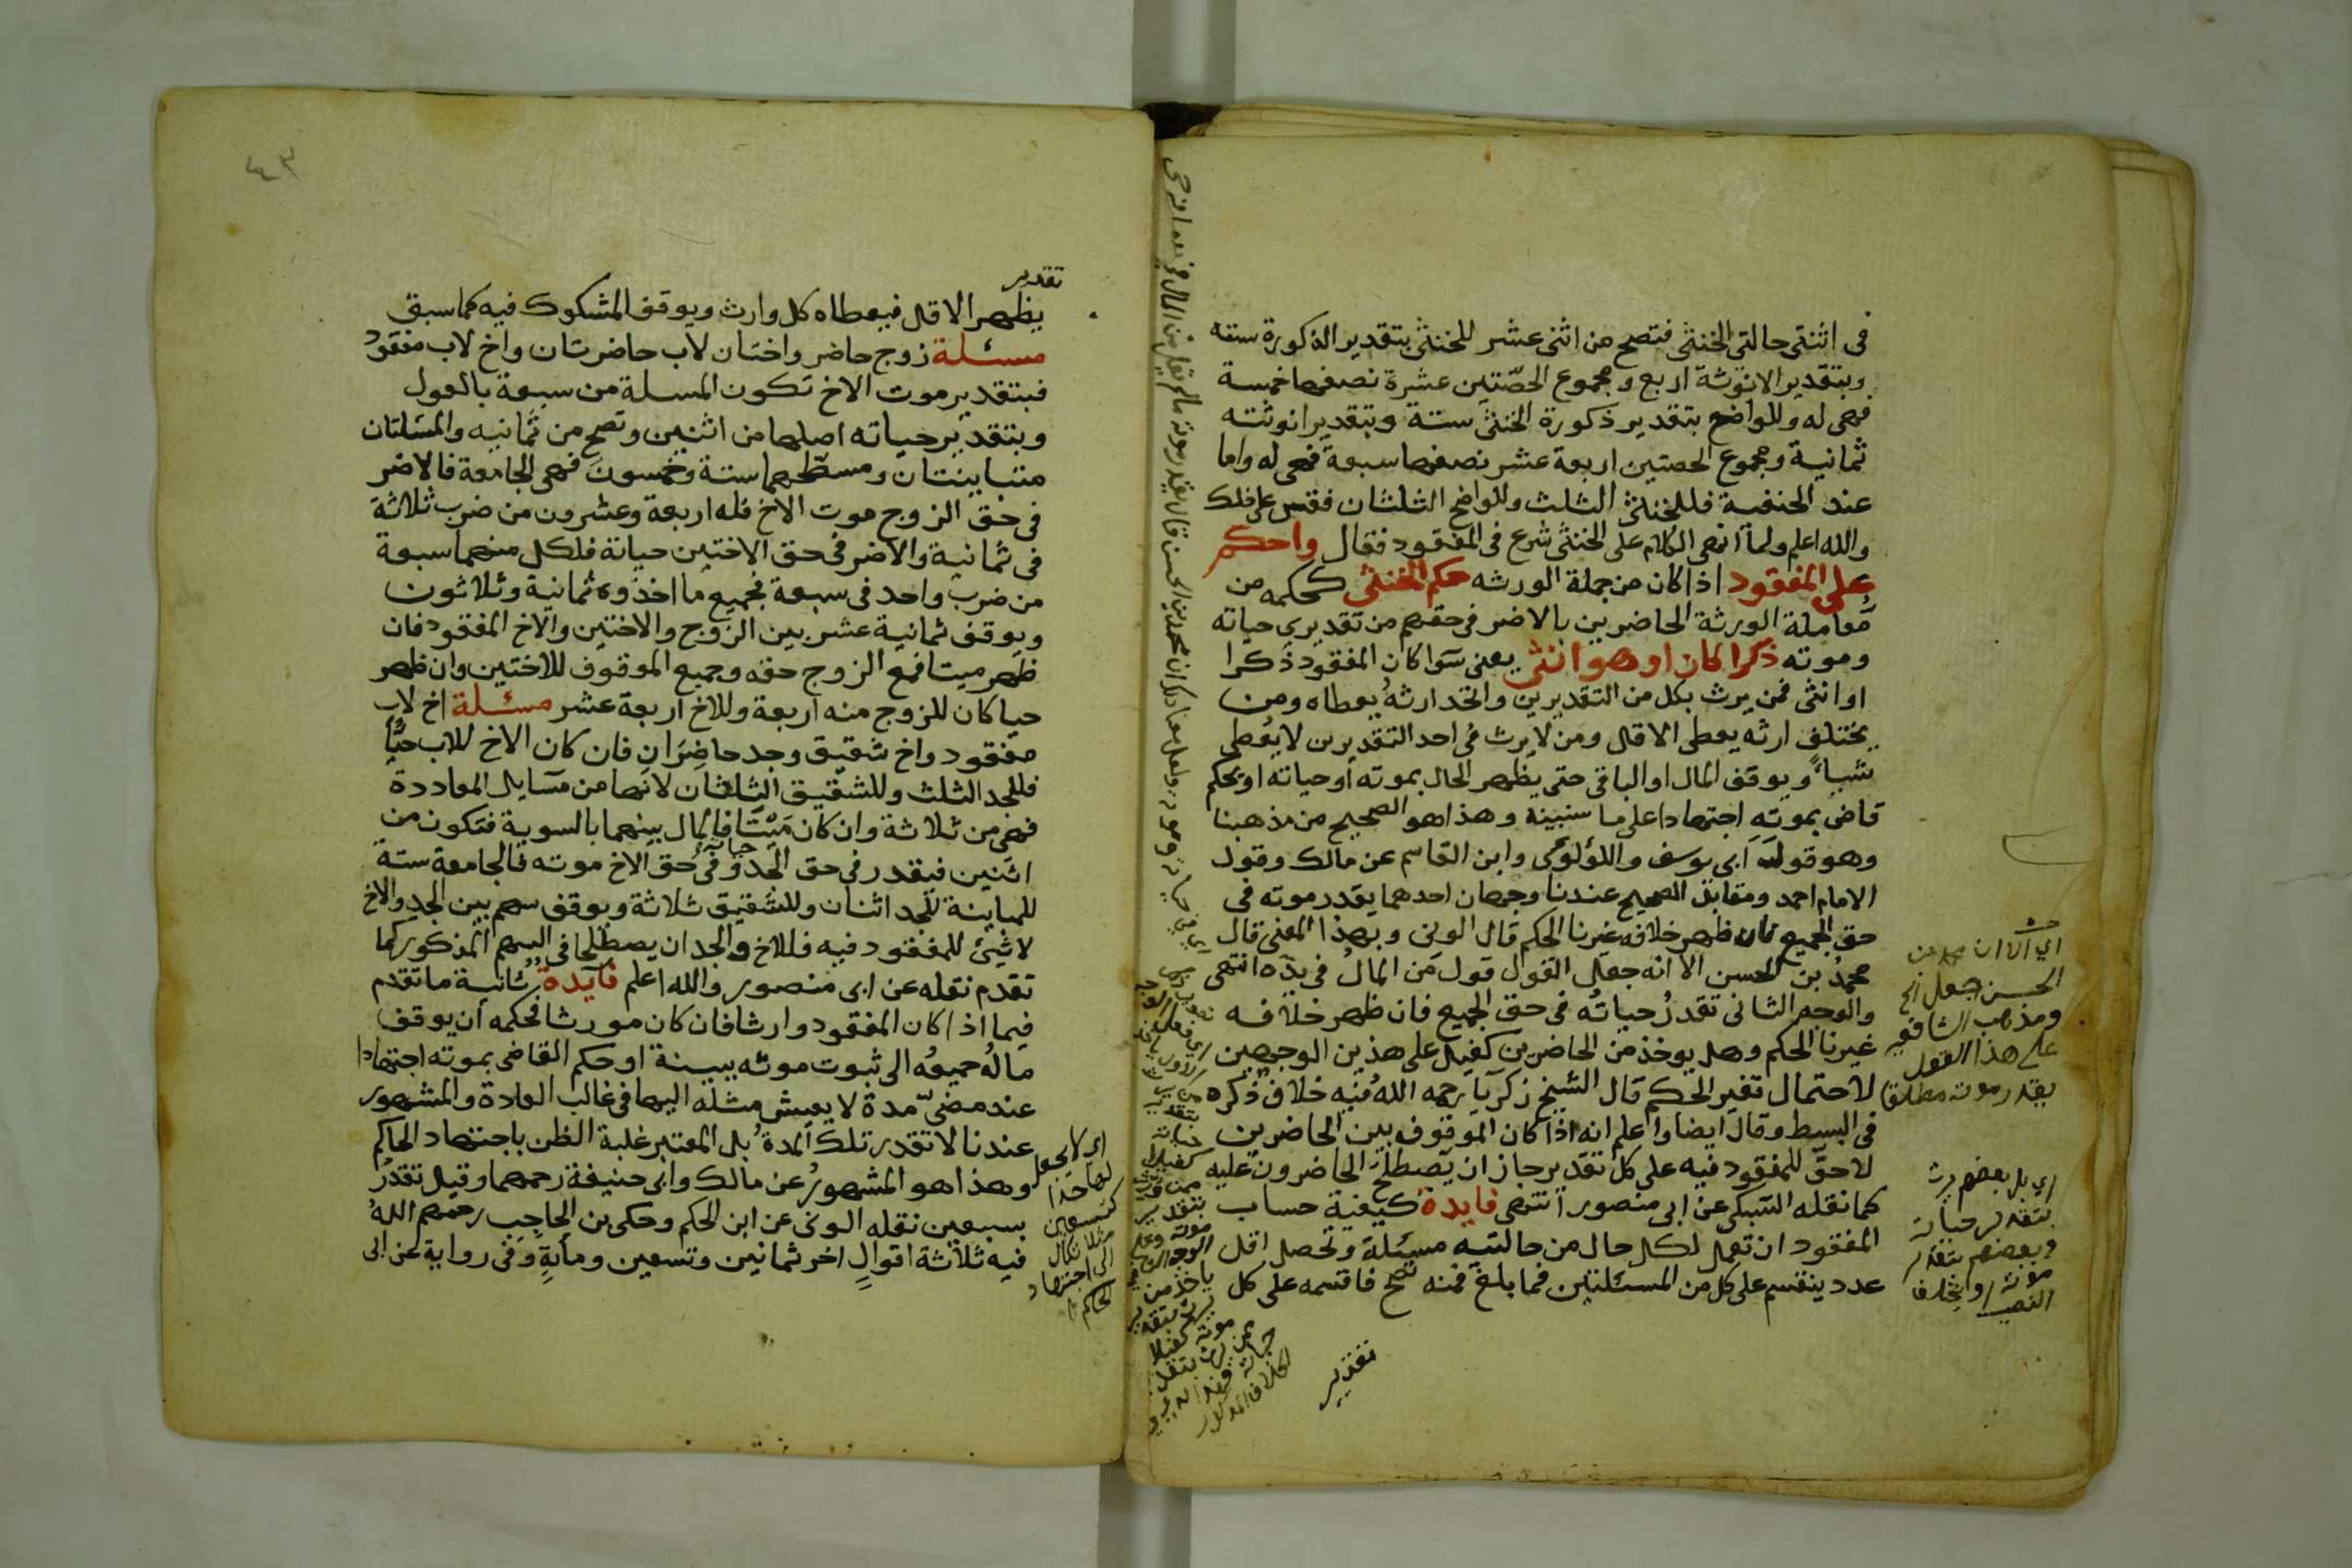 في اثنتى حالتي الخنثى فتصح من اثني عشر للخنثى بتقدير الذكورة سته
وبتقدير الانوثة اربع ومجموع الحصّتين عشرة نصفها خمسة
فهي له وللواضح بتقدير ذكورة الخنثى ستة وبتقدير انوثته
ثمانية ومجموع الحصتين اربعة عشر نصفها سبعة فهي له واما
عند الحنفية فللخنثى الثلث وللواضح الثلثان فقس على ذلك
والله اعلم ولما انهى الكلام على الخنثى شرع في المفقود فقال واحكم
على المفقود اذا كان من جملة الورثه حكم الخنثى كحكمه من
معاملة الورثة الحاضرين بالاضر في حقهم من تقديري حياته
وموته ذكرا كان او هو انثى يعني سوا كان المفقود ذكرا
او انثى فمن يرث بكل من التقديرين واتحد ارثه يعطاه ومن
يختلف ارثه يعطى الاقل ومن لا يرث في احد التقديرين لا يعطى
شياً ويوقف المال او الباقي حتى يظهر الحال بموته أو حياته او يحكم
قاض بموته اجتهادا على ما سنبينه وهذا هو الصحيح من مذهبنا
وهو قول ابي يوسف واللؤلؤي وابن القاسم عن مالك وقول
الامام احمد ومقابل الصحيح عندنا وجهان احدهما يقدر موته في
حق الجميع فان ظهر خلافه غيرنا الحكم قال الوني وبهذا المعنى قال
محمد بن الحسن الا انه جعل القول قول من المال في يده انتهى
والوجه الثاني تقدر حياته في حق الجميع فان ظهر خلافه
غيرنا الحكم وهل يوخذ من الحاضرين كفيل على هذين الوجهين
لاحتمال تغير الحكم قال الشيخ زكريا رحمه الله فيه خلاف ذكره
في البسيط وقال ايضا واعلم انه اذا كان الموقوف بين الحاضرين
لا حق للمفقود فيه على كل تقدير جاز ان يصطلح الحاضرون عليه
كما نقله السبكي عن ابي منصور انتهى فايدة كيفية حساب
المفقود ان تعمل لكل حال من حالتيه مسئلة وتحصل اقل
عدد ينقسم على كل من المسئلتين فما بلغ فمنه تصح فاقسمه على كل
تقدير
اي الا ان محمد بن
الحسن جعل الخ
ومذهب الشافعي
على هذا القول
يقدر موته مطلقا
اي بل بعضهم يرث
بتقدير حياته
وبعضهم بتقدير
موته
٤٣
تقدير
يظهر الاقل فيعطاه كل وارث ويوقف المشكوك فيه كما سبق
مسئلة زوج حاضر واختان لاب حاضرتان واخ لاب مفقود
فبتقدير موت الاخ تكون المسلة من سبعة بالعول
وبتقدير حياته اصلها من اثنين وتصح من ثمانيه والمسئلتان
متباينتان ومسطّحهما ستة وخمسون فهي الجامعة فالاضر
في حق الزوج موت الاخ فله اربعة وعشرون من ضرب ثلاثة
في ثمانية والاضر في حق الاختين حياته فلكل منهما سبعة
من ضرب واحد في سبعة فجميع ما اخذوه ثمانية وثلاثون
ويوقف ثمانية عشر بين الزوج والاختين والاخ المفقود فان
ظهر ميتا فمع الزوج حقه وجميع الموقوف للاختين وان ظهر
حيا كان للزوج منه اربعة وللاخ اربعة عشر مسئلة اخ لاب
مفقود واخ شقيق وجد حاضران فان كان الاخ للاب حيا
فللجد الثلث وللشقيق الثلثان لانها من مسايل المعاددة
فهي من ثلاثة وان كان ميّتا فالمال بينهما بالسوية فتكون من
اثنين فيقدر في حق الجد حياته وفي حق الاخ موته فالجامعة ستة
للمباينة للجد اثنان وللشقيق ثلاثة ويوقف سهم بين الجد والاخ
لا شئ للمفقود فيه فللاخ والجد ان يصطلحا في السهم المذكور كما
تقدم نقله عن ابي منصور والله اعلم فايدة ثانية ما تقدم
فيما اذا كان المفقود وارثا فان كان مورثا فحكمه أن يوقف
ماله جميعه الى ثبوت موته ببينة او حكم القاضي بموته اجتهادا
عند مضيّ مدة لا يعيش مثله اليها في غالب العادة والمشهور
عندنا لا تقدر تلك المدة بل المعتبر غلبة الظن باجتهاد الحاكم
وهذا هو المشهور عن مالك وابي حنيفة رحمهما وقيل تقدر
بسبعين نقله الوني عن ابن الحكم وحكى بن الحاجب رحمهم الله
فيه ثلاثة اقوال اخر ثمانين وتسعين ومأية وفي رواية عن ابي
اي لا يجعل
لها حدا
كتسعين
مثلا بكال
الى اجتهاد
الحاكم